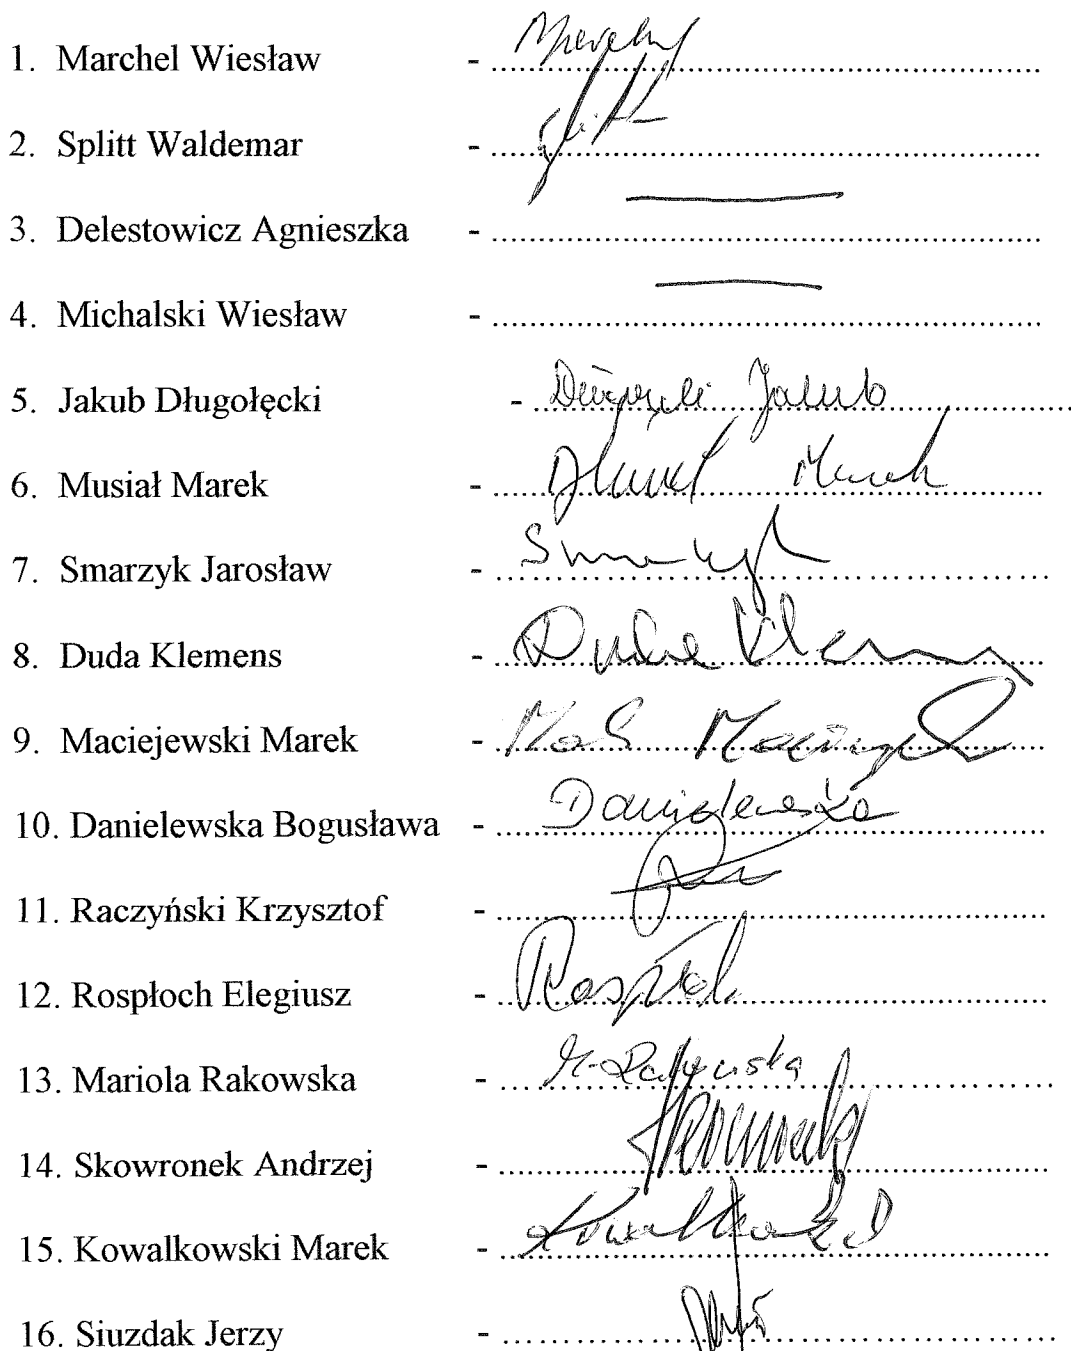 1. Marchel Wiesław -
2. Splitt Waldemar - Splitt
3. Delestowicz Agnieszka -
4. Michalski Wiesław -
5. Jakub Długołęcki - Jakub
6. Musiał Marek - Marek
7. Smarzyk Jarosław - Smarzyk
8. Duda Klemens - Duda Klemens
9. Maciejewski Marek -
10. Danielewska Bogusława - Danielewska
11. Raczyński Krzysztof -
12. Rospłoch Elegiusz -
13. Mariola Rakowska - M. Rakowska
14. Skowronek Andrzej -
15. Kowalkowski Marek -
16. Siuzdak Jerzy -